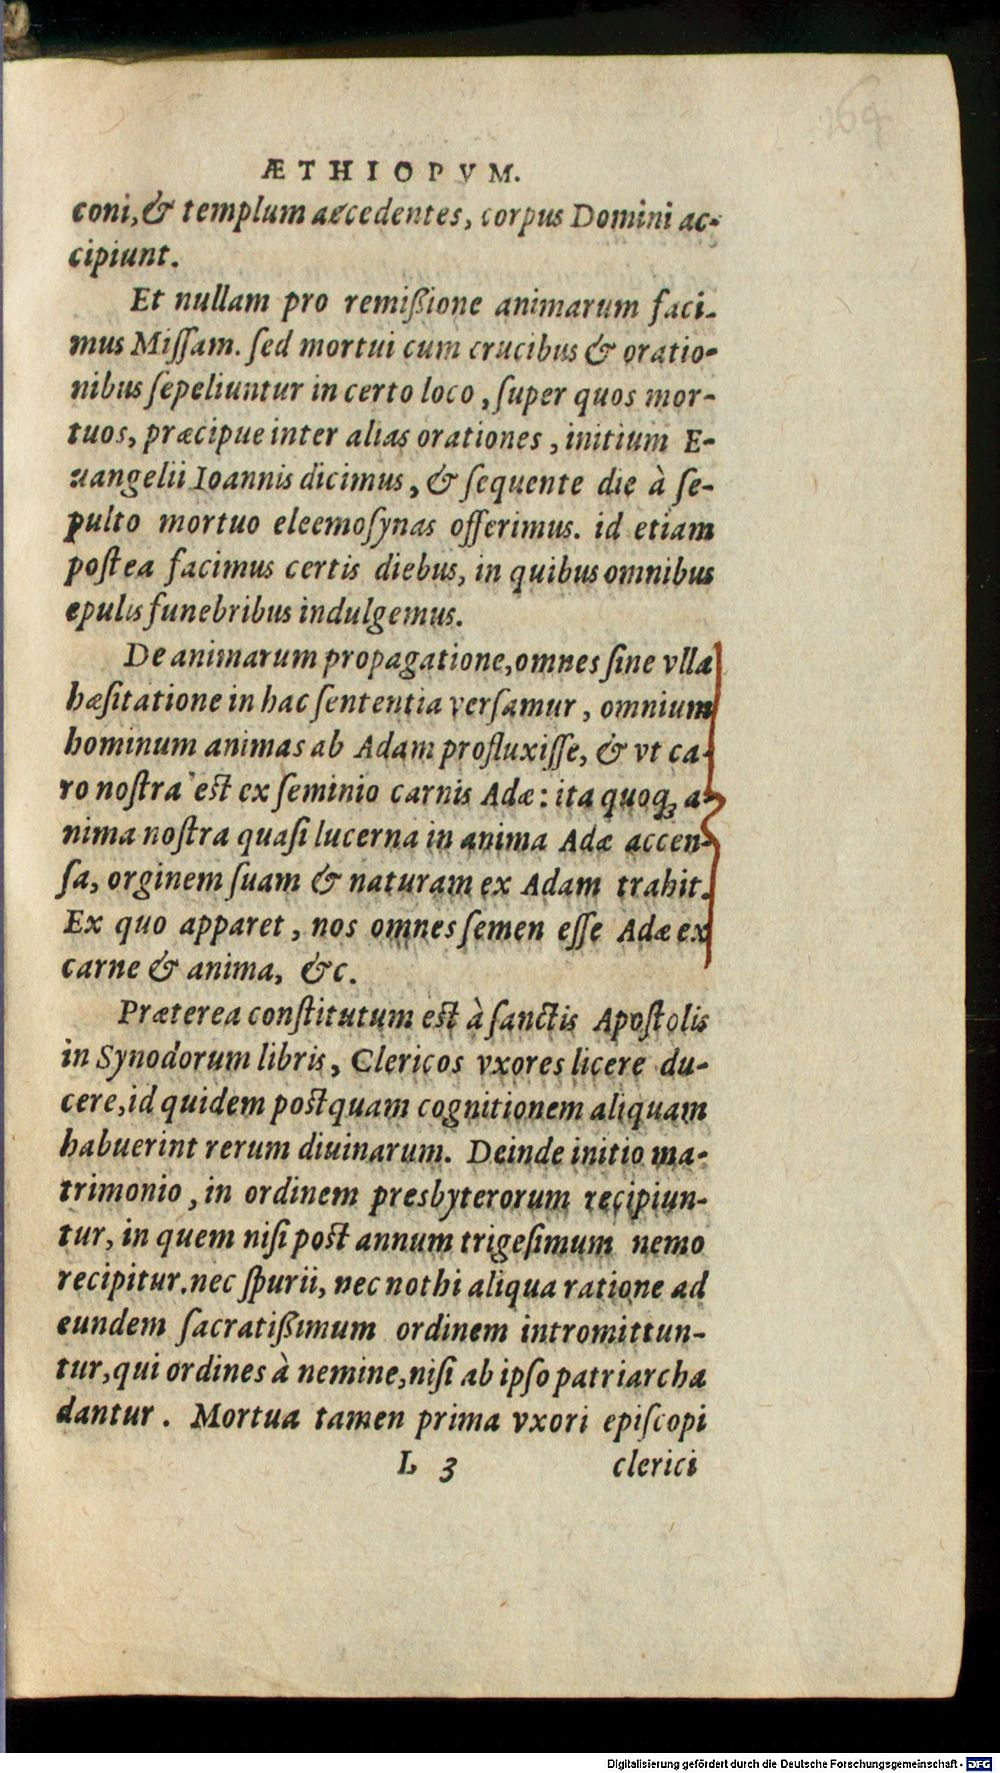 164
ÆTHIOPVM.
coni, & templum accedentes, corpus Domini ac-
cipiunt.
Et nullam pro remißione animarum faci-
mus Miſſam. ſed mortui cum crucibus & oratio-
nibus ſepeliuntur in certo loco, ſuper quos mor-
tuos, præcipue inter alias orationes, initium E-
uangelii Ioannis dicimus, & ſequente die à ſe-
pulto mortuo eleemoſynas offerimus. id etiam
poſtea facimus certis diebus, in quibus omnibus
epulis funebribus indulgemus.
De animarum propagatione, omnes ſine vlla
hæſitatione in hac ſententia verſamur, omnium
hominum animas ab Adam profluxiſſe, & vt ca-
ro noſtra eſt ex ſeminio carnis Adæ: ita quoq; a-
nima noſtra quaſi lucerna in anima Adæ accen-
ſa, orginem ſuam & naturam ex Adam trahit.
Ex quo apparet, nos omnes ſemen eſſe Adæ ex
carne & anima, &c.
Præterea conſtitutum eſt à ſanctis Apoſtolis
in Synodorum libris, Clericos vxores licere du-
cere, id quidem poſtquam cognitionem aliquam
habuerint rerum diuinarum. Deinde initio ma-
trimonio, in ordinem presbyterorum recipiun-
tur, in quem niſi poſt annum trigeſimum nemo
recipitur. nec ſpurii, nec nothi aliqua ratione ad
eundem ſacratißimum ordinem intromittun-
tur, qui ordines à nemine, niſi ab ipſo patriarcha
dantur. Mortua tamen prima vxori epiſcopi
L 3 clerici
Digitalisierung gefördert durch die Deutsche Forschungsgemeinschaft - DFG